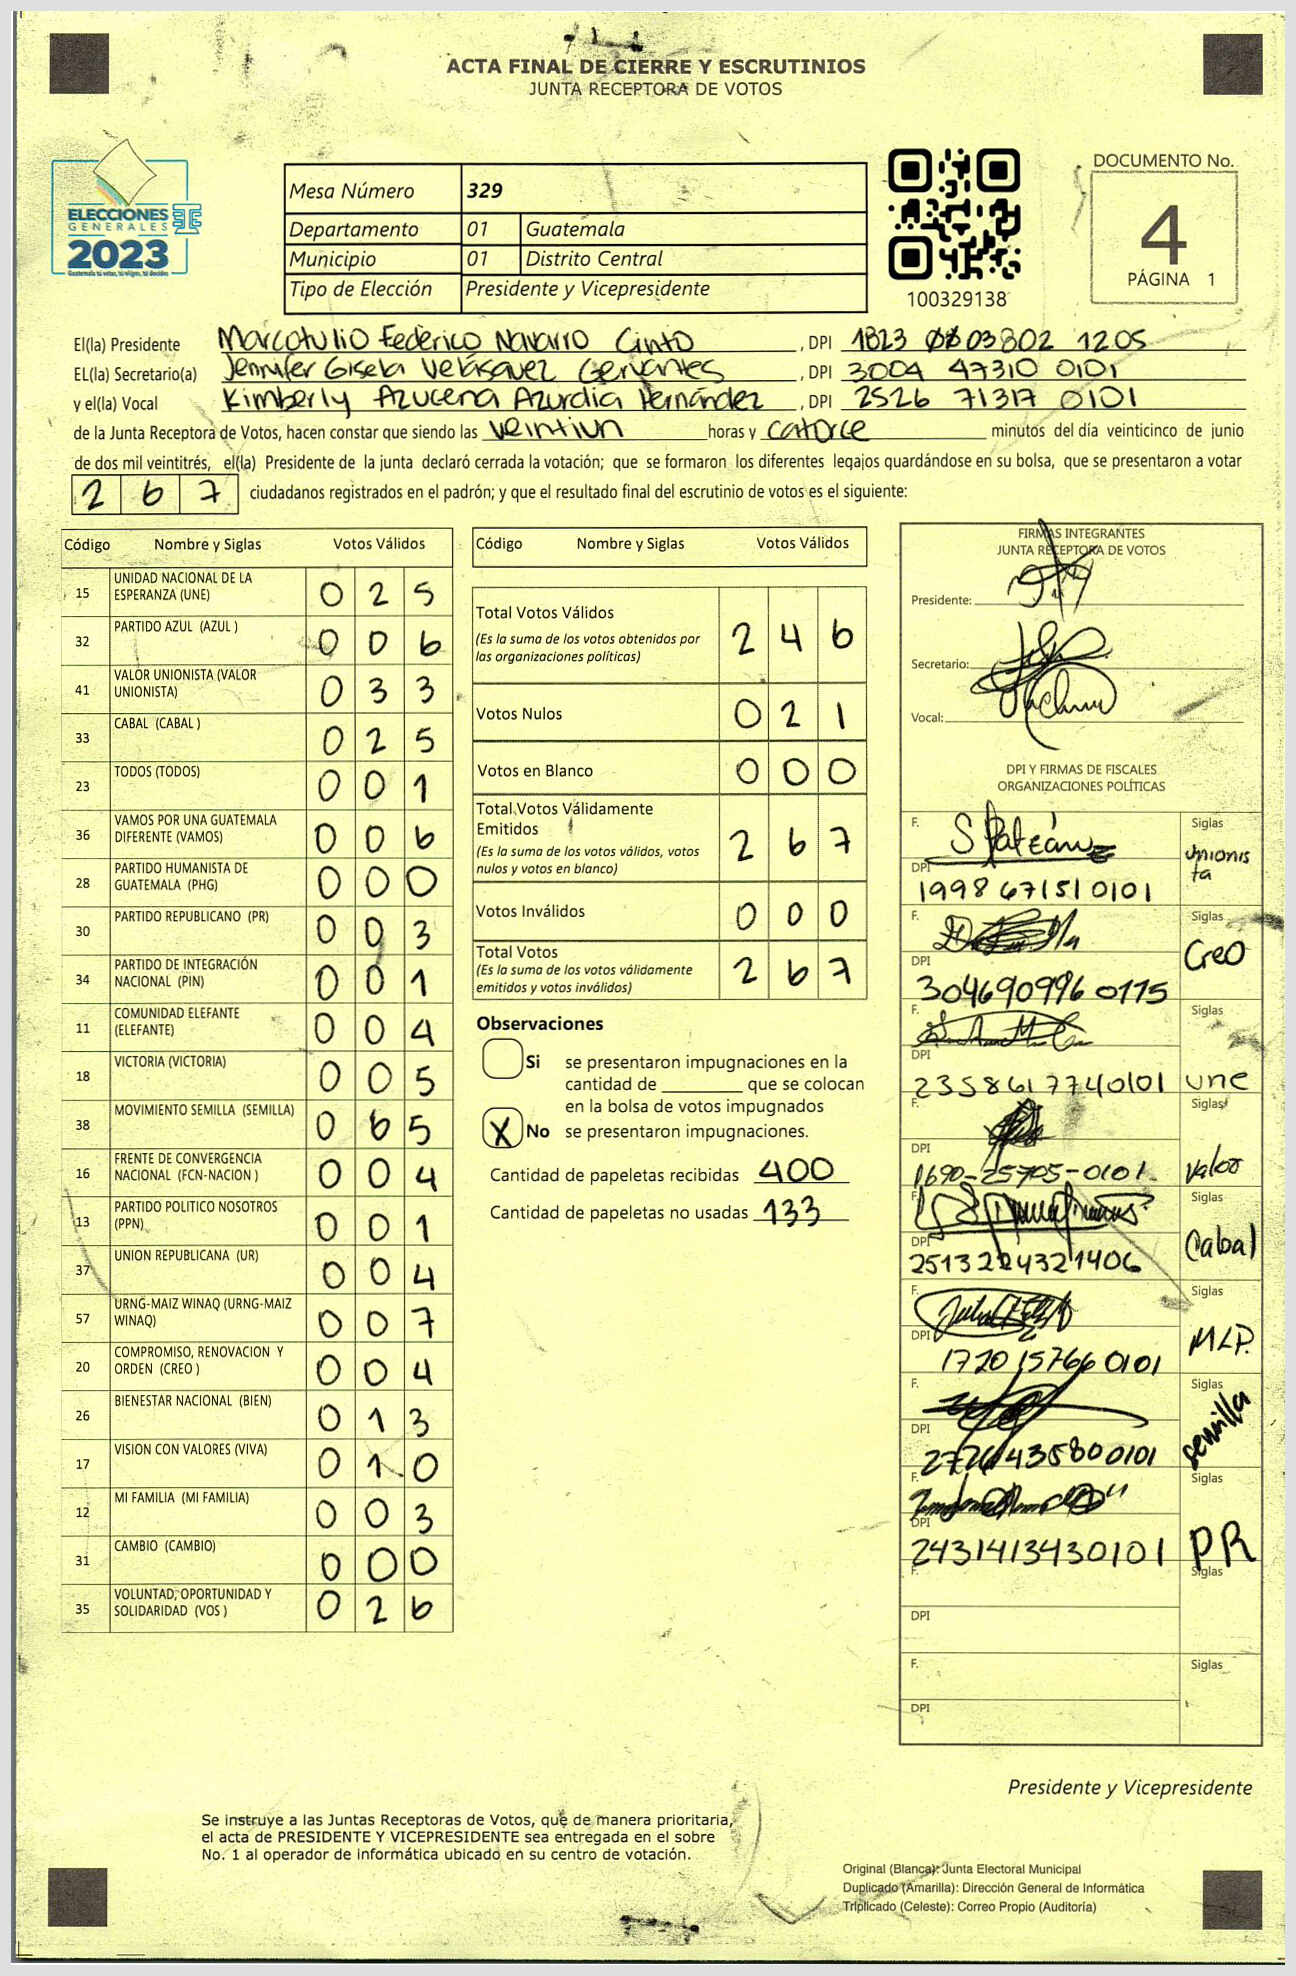 ACTA FINAL DE CIERRE Y ESCRUTINIOS
JUNTA RECEPTORA DE VOTOS
ELECCIONES
GENERALES
2023
Guatemala tú votas, tú eliges, tú decides
Mesa Número 329
Departamento 01 Guatemala
Municipio 01 Distrito Central
Tipo de Elección Presidente y Vicepresidente
100329138
DOCUMENTO No.
4
PÁGINA 1
El(la) Presidente Marcotulio Federico Navarro Cinto , DPI 1823 03802 1205
EL(la) Secretario(a) Jennifer Gisela Velásquez Cervantes , DPI 3004 47310 0101
y el(la) Vocal Kimberly Azucena Azurdia Hernández , DPI 2526 71317 0101
de la Junta Receptora de Votos, hacen constar que siendo las veintiun horas y catorce minutos del día veinticinco de junio
de dos mil veintitrés, el(la) Presidente de la junta declaró cerrada la votación; que se formaron los diferentes legajos guardándose en su bolsa, que se presentaron a votar
2 6 7 ciudadanos registrados en el padrón; y que el resultado final del escrutinio de votos es el siguiente:
Código Nombre y Siglas Votos Válidos
15 UNIDAD NACIONAL DE LA ESPERANZA (UNE) 0 2 5
32 PARTIDO AZUL (AZUL ) 0 0 6
41 VALOR UNIONISTA (VALOR UNIONISTA) 0 3 3
33 CABAL (CABAL ) 0 2 5
23 TODOS (TODOS) 0 0 1
36 VAMOS POR UNA GUATEMALA DIFERENTE (VAMOS) 0 0 6
28 PARTIDO HUMANISTA DE GUATEMALA (PHG) 0 0 0
30 PARTIDO REPUBLICANO (PR) 0 0 3
34 PARTIDO DE INTEGRACIÓN NACIONAL (PIN) 0 0 1
11 COMUNIDAD ELEFANTE (ELEFANTE) 0 0 4
18 VICTORIA (VICTORIA) 0 0 5
38 MOVIMIENTO SEMILLA (SEMILLA) 0 6 5
16 FRENTE DE CONVERGENCIA NACIONAL (FCN-NACION ) 0 0 4
13 PARTIDO POLITICO NOSOTROS (PPN) 0 0 1
37 UNION REPUBLICANA (UR) 0 0 4
57 URNG-MAIZ WINAQ (URNG-MAIZ WINAQ) 0 0 7
20 COMPROMISO, RENOVACION Y ORDEN (CREO ) 0 0 4
26 BIENESTAR NACIONAL (BIEN) 0 1 3
17 VISION CON VALORES (VIVA) 0 1 0
12 MI FAMILIA (MI FAMILIA) 0 0 3
31 CAMBIO (CAMBIO) 0 0 0
35 VOLUNTAD, OPORTUNIDAD Y SOLIDARIDAD (VOS ) 0 2 6
Código Nombre y Siglas Votos Válidos
Total Votos Válidos 2 4 6
(Es la suma de los votos obtenidos por
las organizaciones políticas)
Votos Nulos 0 2 1
Votos en Blanco 0 0 0
Total Votos Válidamente
Emitidos 2 6 7
(Es la suma de los votos válidos, votos
nulos y votos en blanco)
Votos Inválidos 0 0 0
Total Votos 2 6 7
(Es la suma de los votos válidamente
emitidos y votos inválidos)
Observaciones
Si se presentaron impugnaciones en la
cantidad de ________ que se colocan
en la bolsa de votos impugnados
X No se presentaron impugnaciones.
Cantidad de papeletas recibidas 400
Cantidad de papeletas no usadas 133
FIRMAS INTEGRANTES
JUNTA RECEPTORA DE VOTOS
Presidente:
Secretario:
Vocal:
DPI Y FIRMAS DE FISCALES
ORGANIZACIONES POLÍTICAS
F. Siglas
Unionista
DPI 1998 67151 0101
F. Siglas
Creo
DPI 304690996 0115
F. Siglas
DPI 2358617740101 une
F. Siglas
DPI 1690-25705-0101 Valor
F. Siglas
Cabal
DPI 2513224321406
F. Siglas
MLP.
DPI 1720 15766 0101
F. Siglas
semilla
DPI 2726435800101
F. Siglas
DPI 2431413430101 PR
F. Siglas
DPI
F. Siglas
DPI
Presidente y Vicepresidente
Se instruye a las Juntas Receptoras de Votos, que de manera prioritaria,
el acta de PRESIDENTE Y VICEPRESIDENTE sea entregada en el sobre
No. 1 al operador de informática ubicado en su centro de votación.
Original (Blanca): Junta Electoral Municipal
Duplicado (Amarilla): Dirección General de Informática
Triplicado (Celeste): Correo Propio (Auditoría)